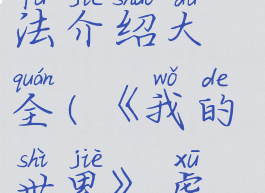 fǎ jiè shào dà
法介绍大
quán wǒ de
全(《我的
shì jiè xū
世界》虚